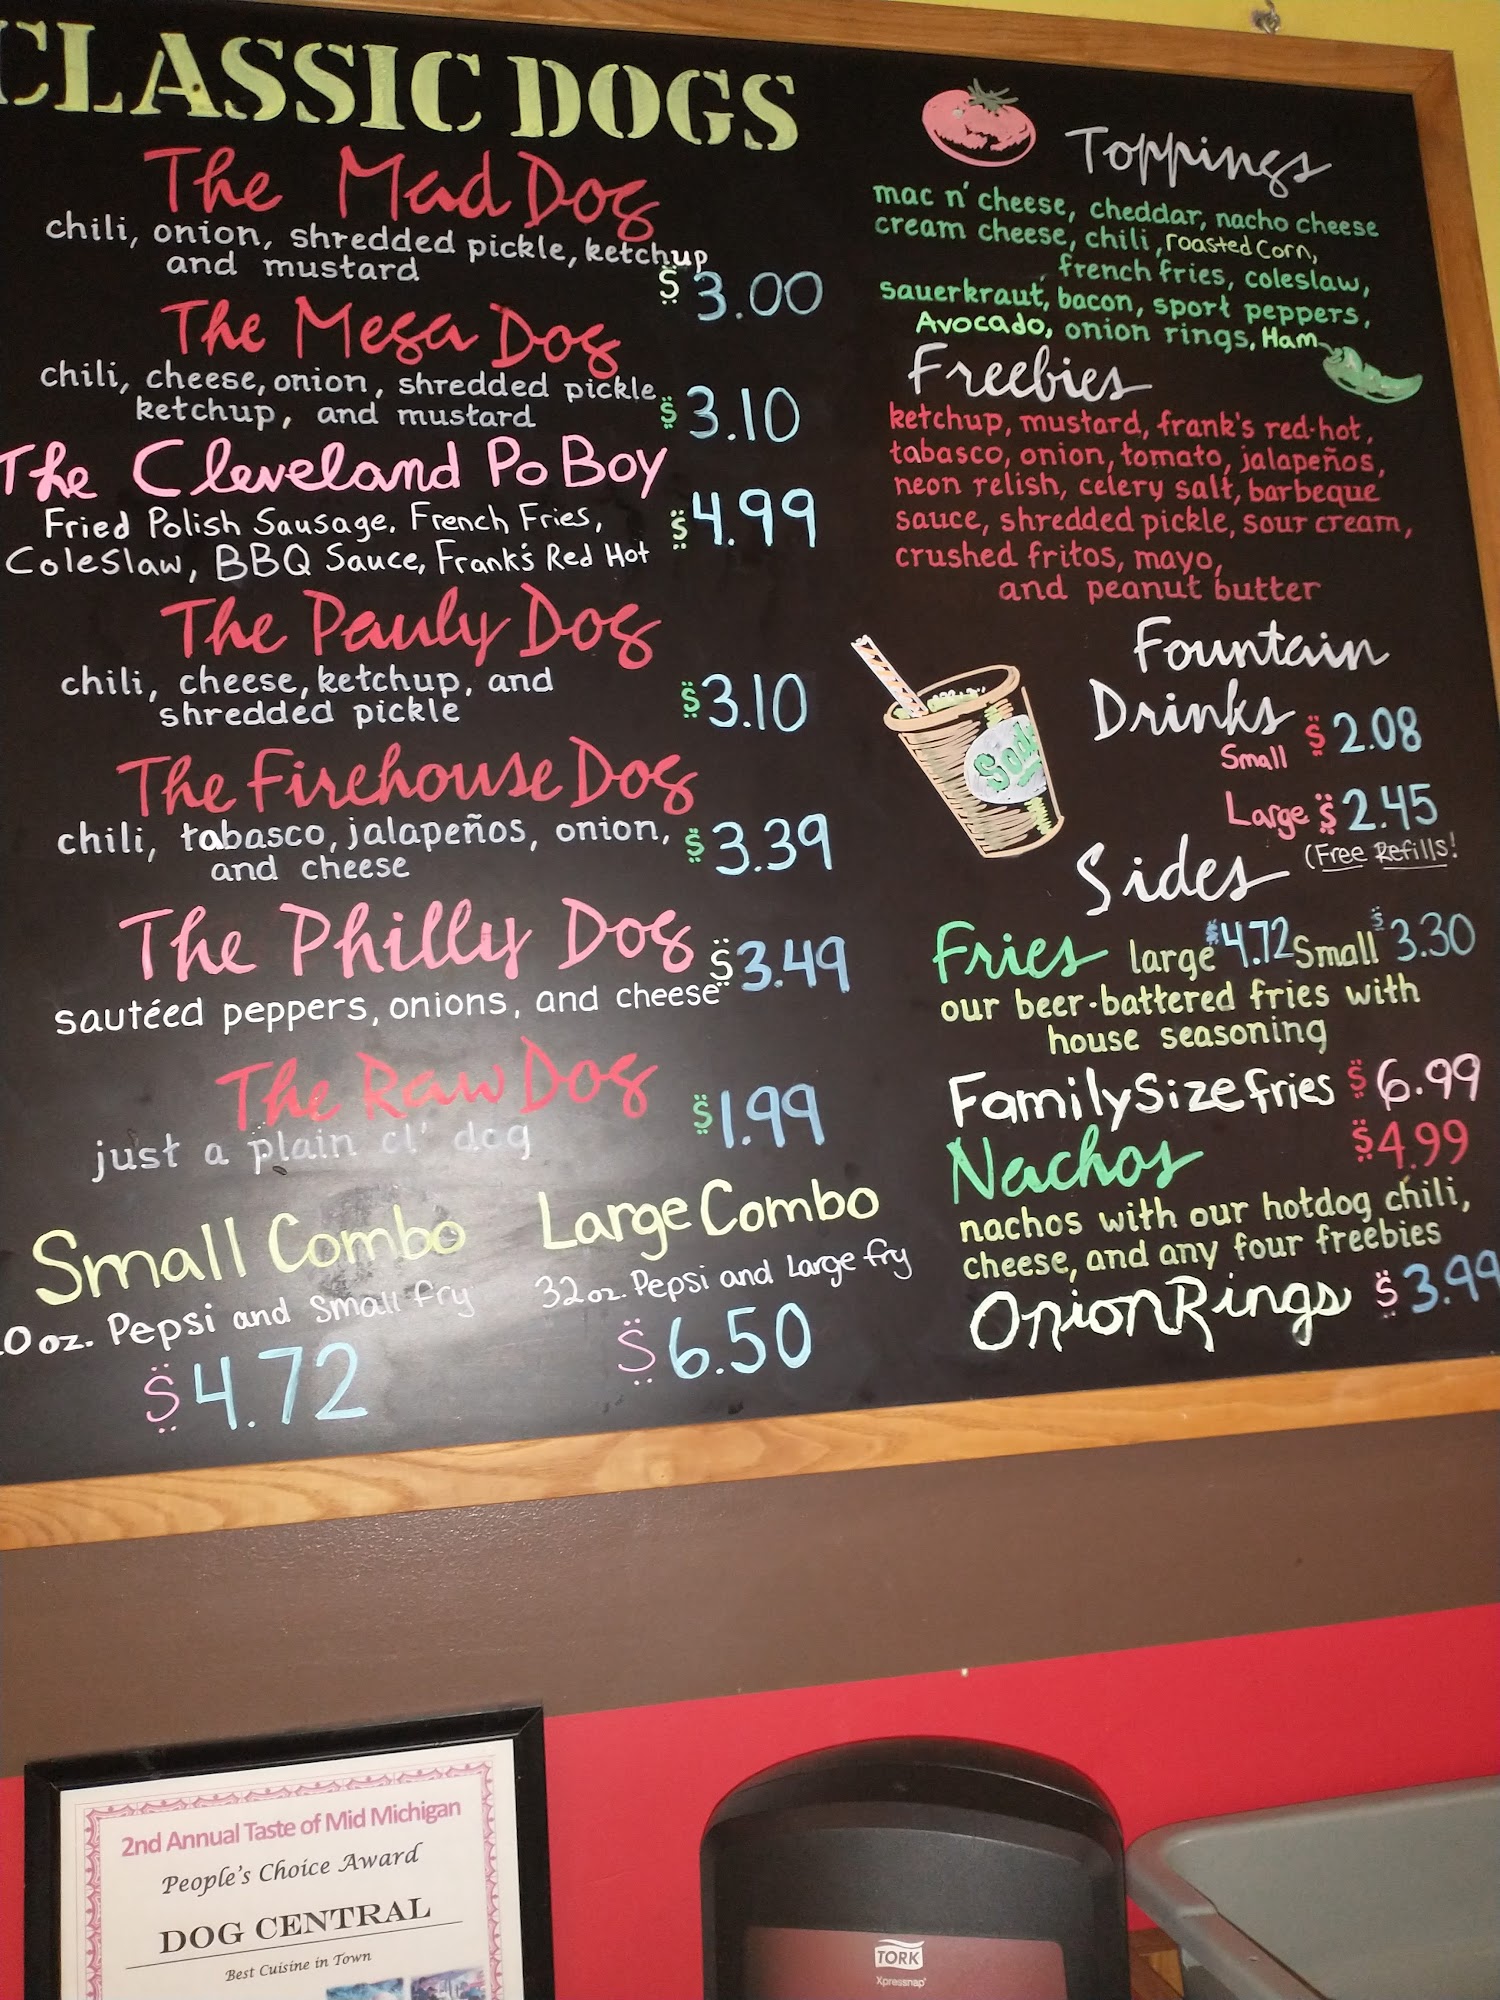 CLASSIC DOGS
The Mad Dog
chili, onion, shredded pickle, ketchup
and mustard
$3.00
The Mega Dog
chili, cheese, onion, shredded pickle,
ketchup, and mustard
$3.10
The Cleveland Po Boy
Fried Polish Sausage, French Fries,
Coleslaw, BBQ Sauce, Frank's Red Hot
$4.99
The Pauly Dog
chili, cheese, ketchup, and
shredded pickle
$3.10
The Firehouse Dog
chili, tabasco, jalapeños, onion,
and cheese
$3.39
The Philly Dog $3.49
sautéed peppers, onions, and cheese
The Raw Dog
just a plain ol' dog
$1.99
Small Combo
0 oz. Pepsi and Small fry
$4.72
Large Combo
32 oz. Pepsi and Large fry
$6.50
Toppings
mac n' cheese, cheddar, nacho cheese
cream cheese, chili, roasted corn,
french fries, coleslaw,
sauerkraut, bacon, sport peppers,
Avocado, onion rings, Ham
Freebies
ketchup, mustard, frank's red-hot,
tabasco, onion, tomato, jalapeños,
neon relish, celery salt, barbeque
sauce, shredded pickle, sour cream,
crushed fritos, mayo,
and peanut butter
Soda
Fountain
Drinks
Small $2.08
Large $2.45
(Free Refills!
Sides
Fries large $4.72 Small $3.30
our beer-battered fries with
house seasoning
Family Size fries $6.99
Nachos $4.99
nachos with our hotdog chili,
cheese, and any four freebies
Onion Rings $3.99
2nd Annual Taste of Mid Michigan
People's Choice Award
DOG CENTRAL
Best Cuisine in Town
TORK
Xpressnap®